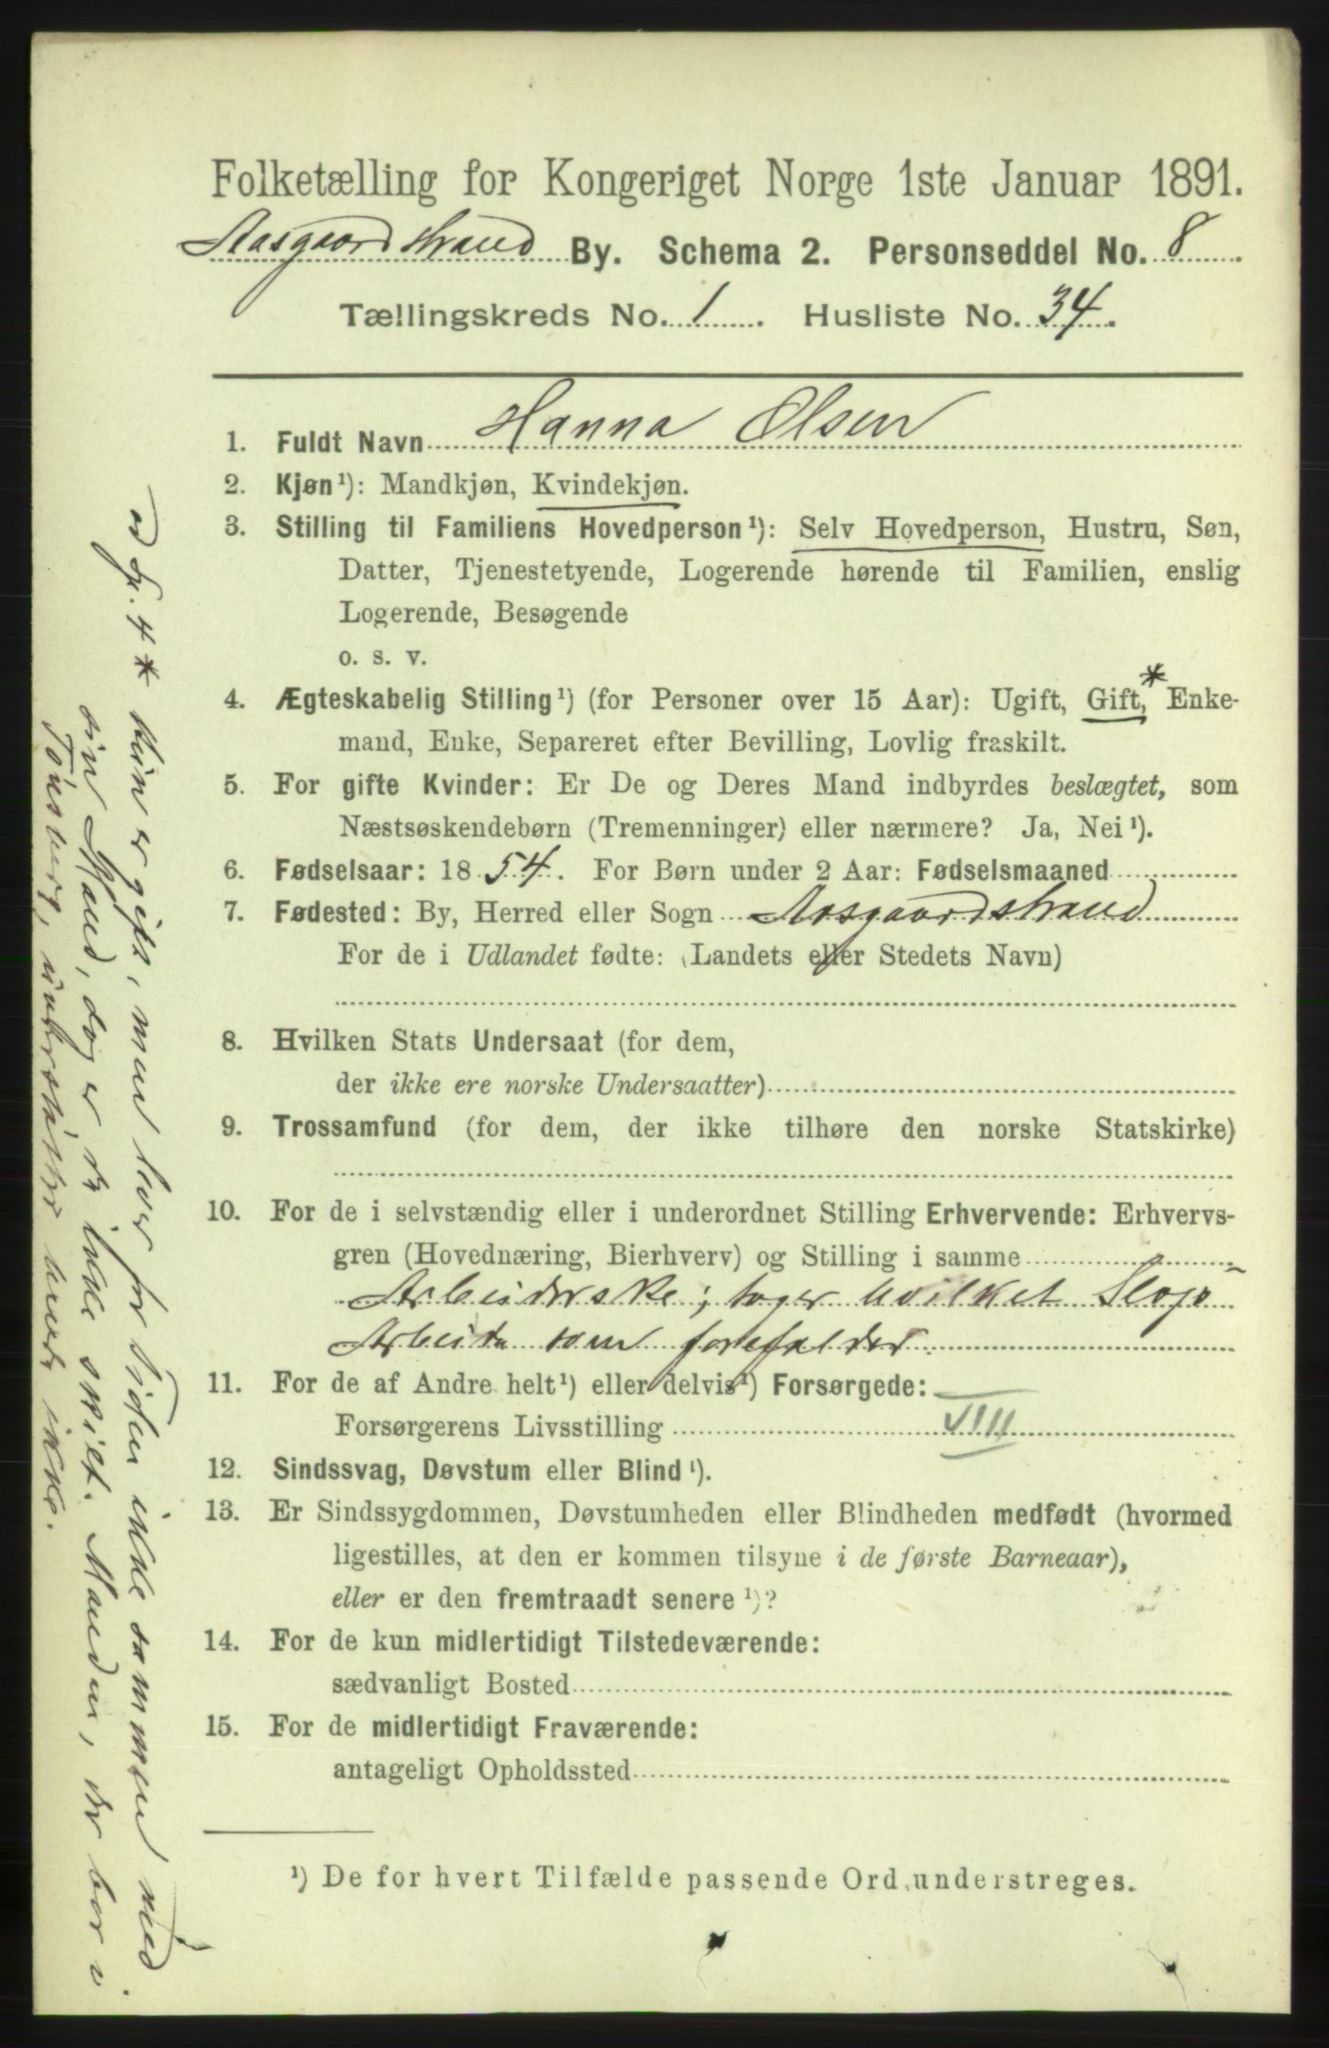 Folketælling for Kongeriget Norge 1ste Januar 1891.
Aasgaardstrand By. Schema 2. Personseddel No. 8
Tællingskreds No. 1. Husliste No. 34.
1. Fuldt Navn Hanna Olsen
2. Kjøn¹): Mandkjøn, Kvindekjøn.
3. Stilling til Familiens Hovedperson¹): Selv Hovedperson, Hustru, Søn,
Datter, Tjenestetyende, Logerende hørende til Familien, enslig
Logerende, Besøgende
o. s. v.
4. Ægteskabelig Stilling¹) (for Personer over 15 Aar): Ugift, Gift,* Enke-
mand, Enke, Separeret efter Bevilling, Lovlig fraskilt.
5. For gifte Kvinder: Er De og Deres Mand indbyrdes beslægtet, som
Næstsøskendebørn (Tremenninger) eller nærmere? Ja, Nei¹).
6. Fødselsaar: 1854. For Børn under 2 Aar: Fødselsmaaned
7. Fødested: By, Herred eller Sogn Aasgaardstrand
For de i Udlandet fødte: (Landets eller Stedets Navn)
8. Hvilken Stats Undersaat (for dem,
der ikke ere norske Undersaatter)
9. Trossamfund (for dem, der ikke tilhøre den norske Statskirke)
10. For de i selvstændig eller i underordnet Stilling Erhvervende: Erhvervs-
gren (Hovednæring, Bierhverv) og Stilling i samme
Arbeiderske; tager hvilket Slags
Arbeide som forefalder.
11. For de af Andre helt¹) eller delvis¹) Forsørgede:
Forsørgerens Livsstilling VIII
12. Sindssvag, Døvstum eller Blind¹).
13. Er Sindssygdommen, Døvstumheden eller Blindheden medfødt (hvormed
ligestilles, at den er kommen tilsyne i de første Barneaar),
eller er den fremtraadt senere¹)?
14. For de kun midlertidigt Tilstedeværende:
sædvanligt Bosted
15. For de midlertidigt Fraværende:
antageligt Opholdssted
¹) De for hvert Tilfælde passende Ord understreges.
4 * Hun er gift, men lever for Tiden ikke sammen med
sin Mand, dog er de ikke skilt. Manden, der bor i
Tönsberg, understötter hende ikke.